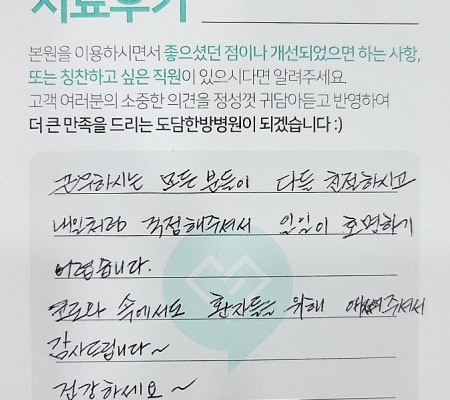 치료후기
본원을 이용하시면서 좋으셨던 점이나 개선되었으면 하는 사항,
또는 칭찬하고 싶은 직원이 있으시다면 알려주세요.
고객 여러분의 소중한 의견을 정성껏 귀담아듣고 반영하여
더 큰 만족을 드리는 도담한방병원이 되겠습니다 :)
근무하시는 모든 분들이 다들 친절하시고
내일처럼 걱정해주셔서 일일이 호명하기
어렵습니다.
연로와 속에서도 환자들을 위해 애써주셔서
감사드립니다~
건강하세요~